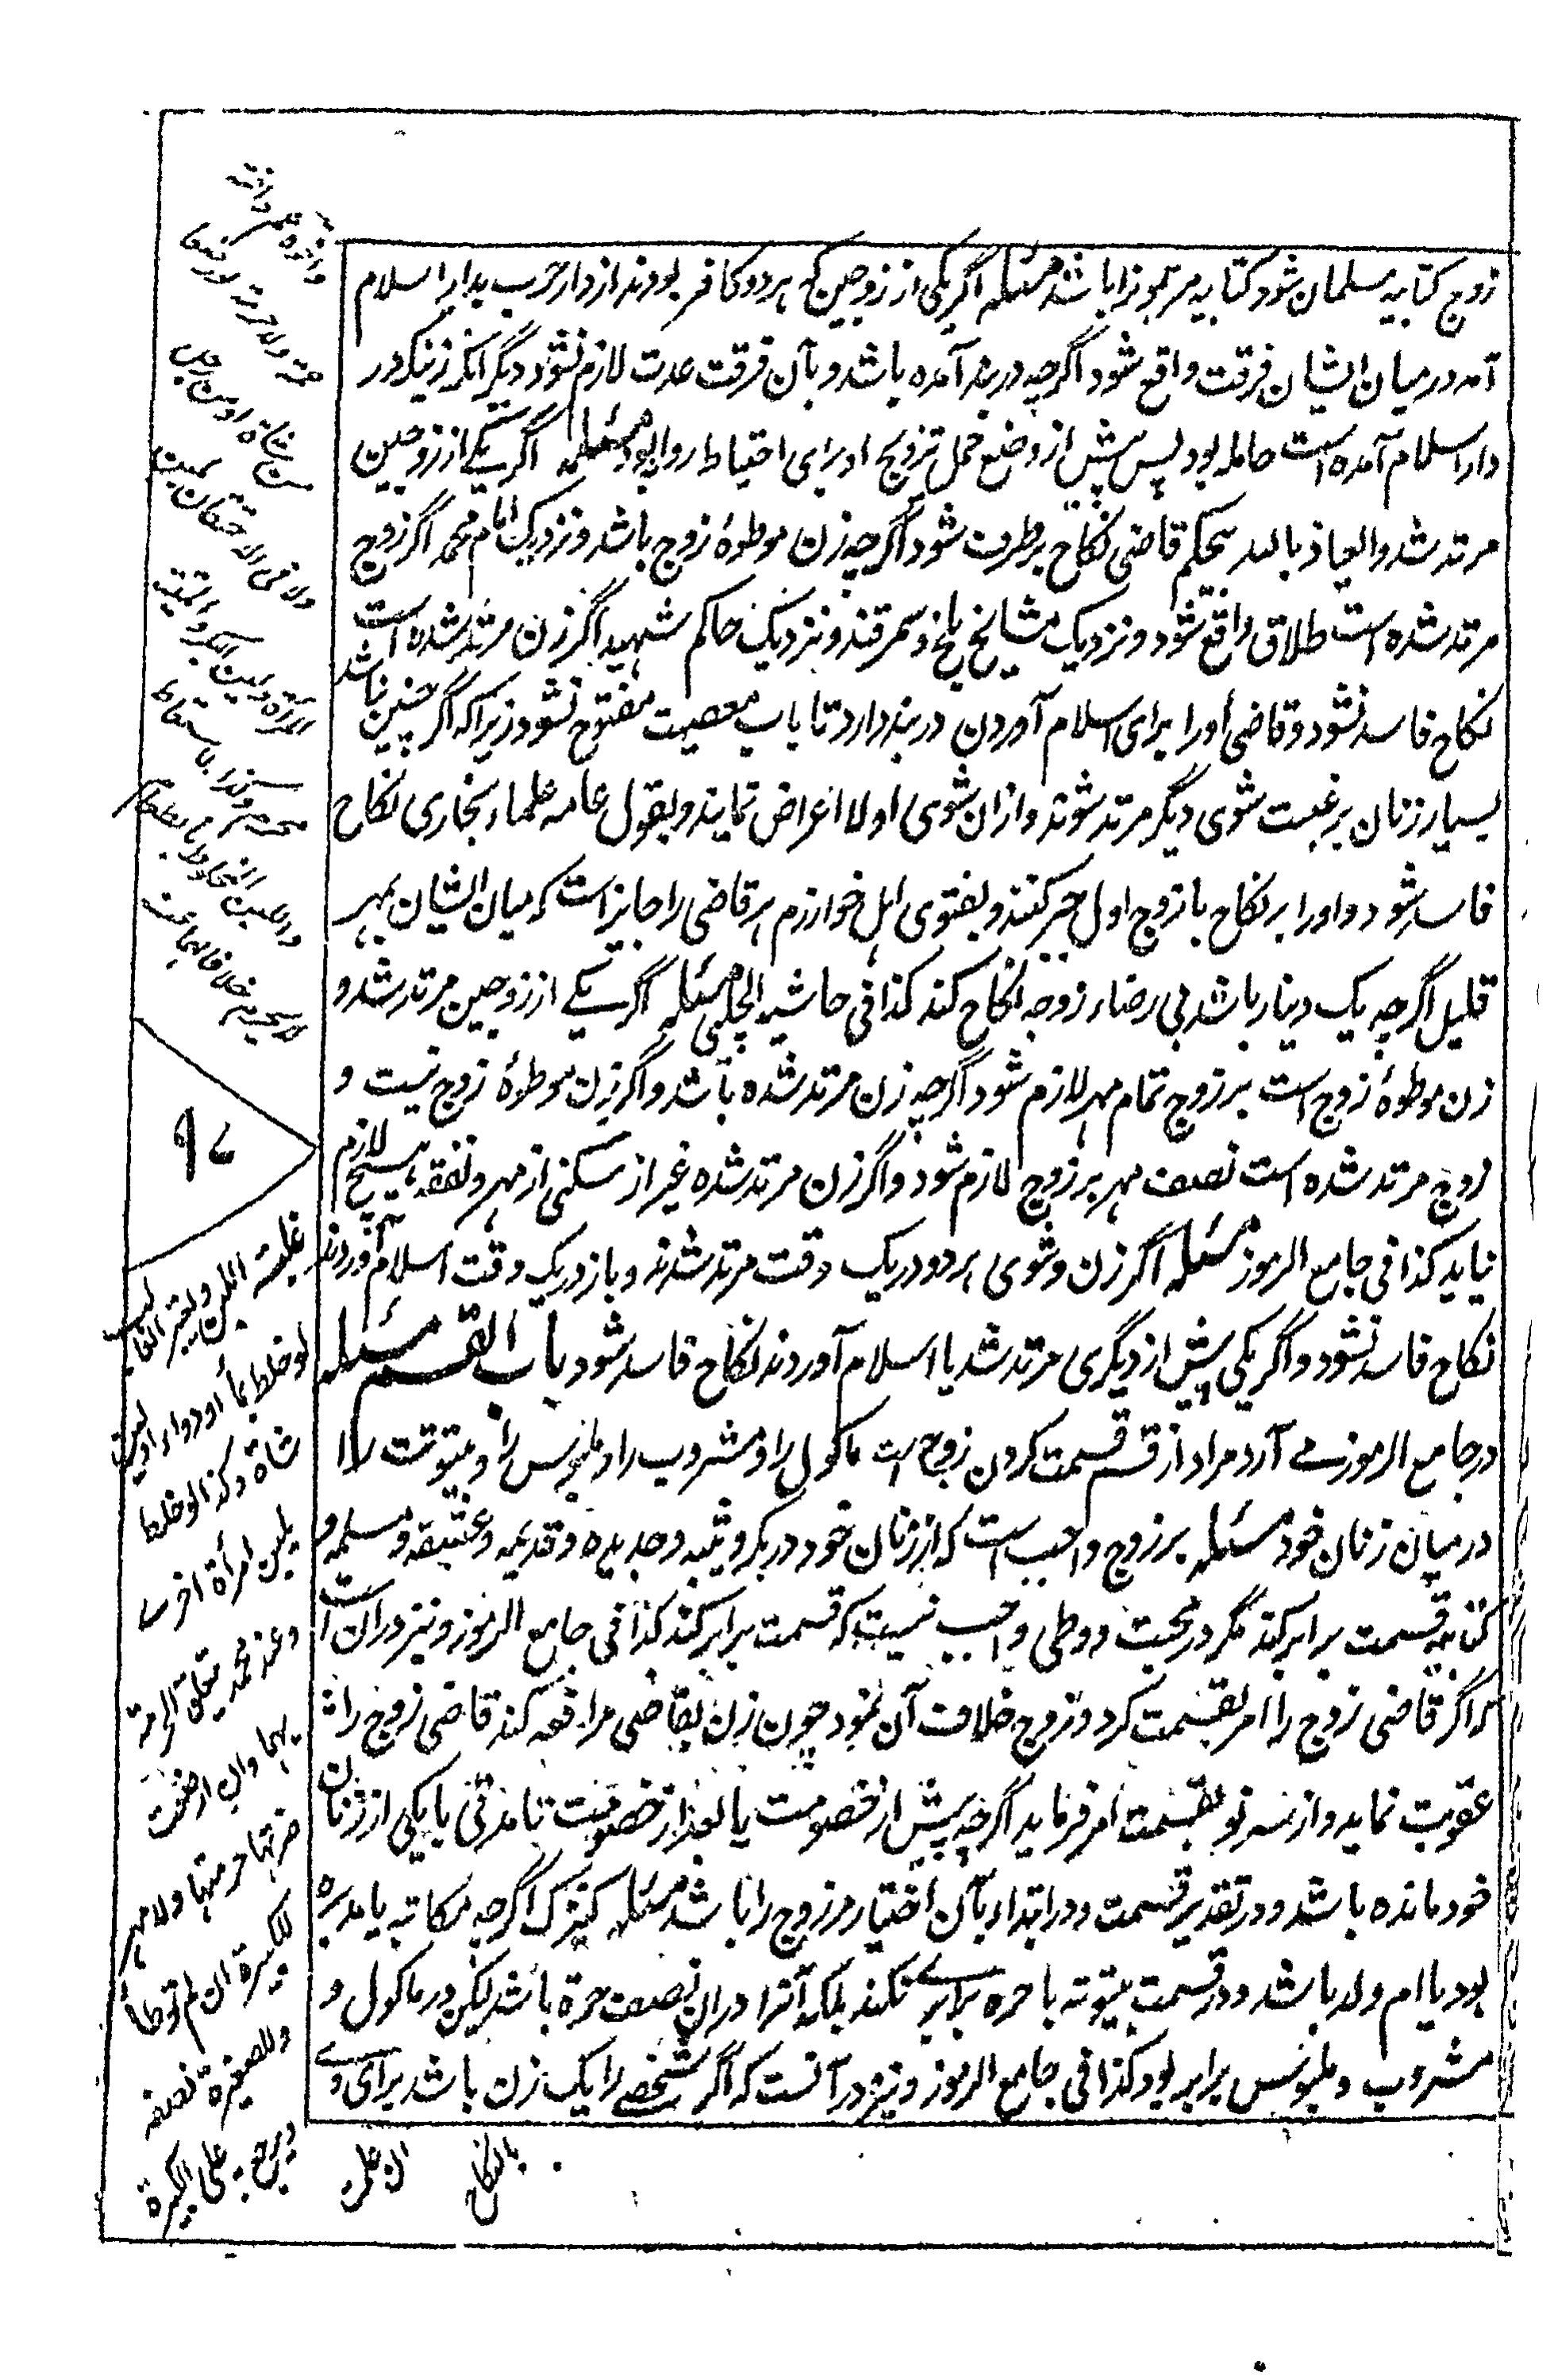 زوج کتابیه مسلمان شود کتابیه مر تجوز را باشد مسئله اگر یکی از زوجین که هر دو کافر بودند از دار حرب بدار اسلام
آمد در میان ایشان فرقت واقع شود اگرچه در بند آمده باشد و بآن فرقت عدت لازم نشود دیگر آنکه زنیکه در
دار اسلام آمده است حامله بود پس پیش از وضع حمل تزویج او برای احتیاط روا بود مسئله اگر یکے از زوجین
مرتد شد والعیاذ بالله بیحکم قاضی نکاح برطرف شود اگرچه زن موطوءۀ زوج باشد و نزدیک امام محمد اگر زوج
مرتد شده است طلاق واقع شود و نزدیک مشایخ بلخ و سمرقند و نزدیک حاکم شهید اگر زن مرتد شده است
نکاح فاسد نشود و قاضی او را برای اسلام آوردن در بند دارد تا باب معصیت مفتوح نشود زیرا که اگر چنین نباشد
بسیار زنان برغبت شوی دیگر مرتد شوند و ازان شوی اولا اعراض نمایند و بقول عامه علماء بخاری نکاح
فاسد شود و او را بر نکاح با زوج اول جبر کنند و بفتوی اهل خوارزم هر قاضی را جایز است که میان ایشان بمهر
قلیل اگرچه یک دینار باشد بی رضاء زوجه انکاح کند کذا فی حاشیه الچلپی مسئله اگر یکے از زوجین مرتد شد و
زن موطوءۀ زوج است بر زوج تمام مهر لازم شود اگرچه زن مرتد شده باشد و اگر زن موطوءۀ زوج نیست و
زوج مرتد شده است نصف مهر بر زوج لازم شود و اگر زن مرتد شده غیر از سکنی از مهر و نفقه هیچ لازم
نیاید کذا فی جامع الرموز مسئله اگر زن و شوی هر دو در یک وقت مرتد شدند و باز در یک وقت اسلام آوردند
نکاح فاسد نشود و اگر یکی پیش از دیگری مرتد شد یا اسلام آوردند نکاح فاسد شود باب القسم مسئله
در جامع الرموز مے آرد مراد از قسم قسمت کردن زوج است ماکول را و مشروب را و ملبوس را و بیتوتت را
در میان زنان خود مسئله بر زوج واجب است که از زنان خود در بکر و ثیبه و جدیده و قدیمه و عتیقه و مسلمه و
کتابیه قسمت برابر کند مگر در محبت و وطی واجب نیست که قسمت برابر کند کذا فی جامع الرموز و نیز دران است
که اگر قاضی زوج را امر بقسمت کرد و زوج خلاف آن نمود چون زن بقاضی مرافعه کند قاضی زوج را
عقوبت نماید و از سر نو بقسمت امر فرماید اگرچه پیش از خصومت یا بعد از خصومت تا مدتی با یکی از زنان
خود مانده باشد و در تقدیر قسمت و در ابتداء بآن اختیار مر زوج را باشد مسئله کنیزک اگرچه مکاتبه یا مدبره
بود یا ام ولد باشد و در قسمت بیتوته با حره برابرے نکند بلکه آنرا دران نصف حرة باشد لیکن در ماکول و
مشروب و ملبوس برابر بود کذا فی جامع الرموز و نیز در آنست که اگر شخصے را یک زن باشد برای وے
٩٧
غلبة اللبن ويعتبر الغالب
لو خلط بماء او دواء او لبن
شاة وكذا لو خلط
بلبن امرأة اخرى
وعند محمد يتعلق الحرمة
بهما وان ارضعت
ضرتها حرمتها ولا مهر
للكبيرة ان لم توطأ
وللصغيرة نصفه
ويرجع به على الكبيرة
ان علمت
بالنكاح